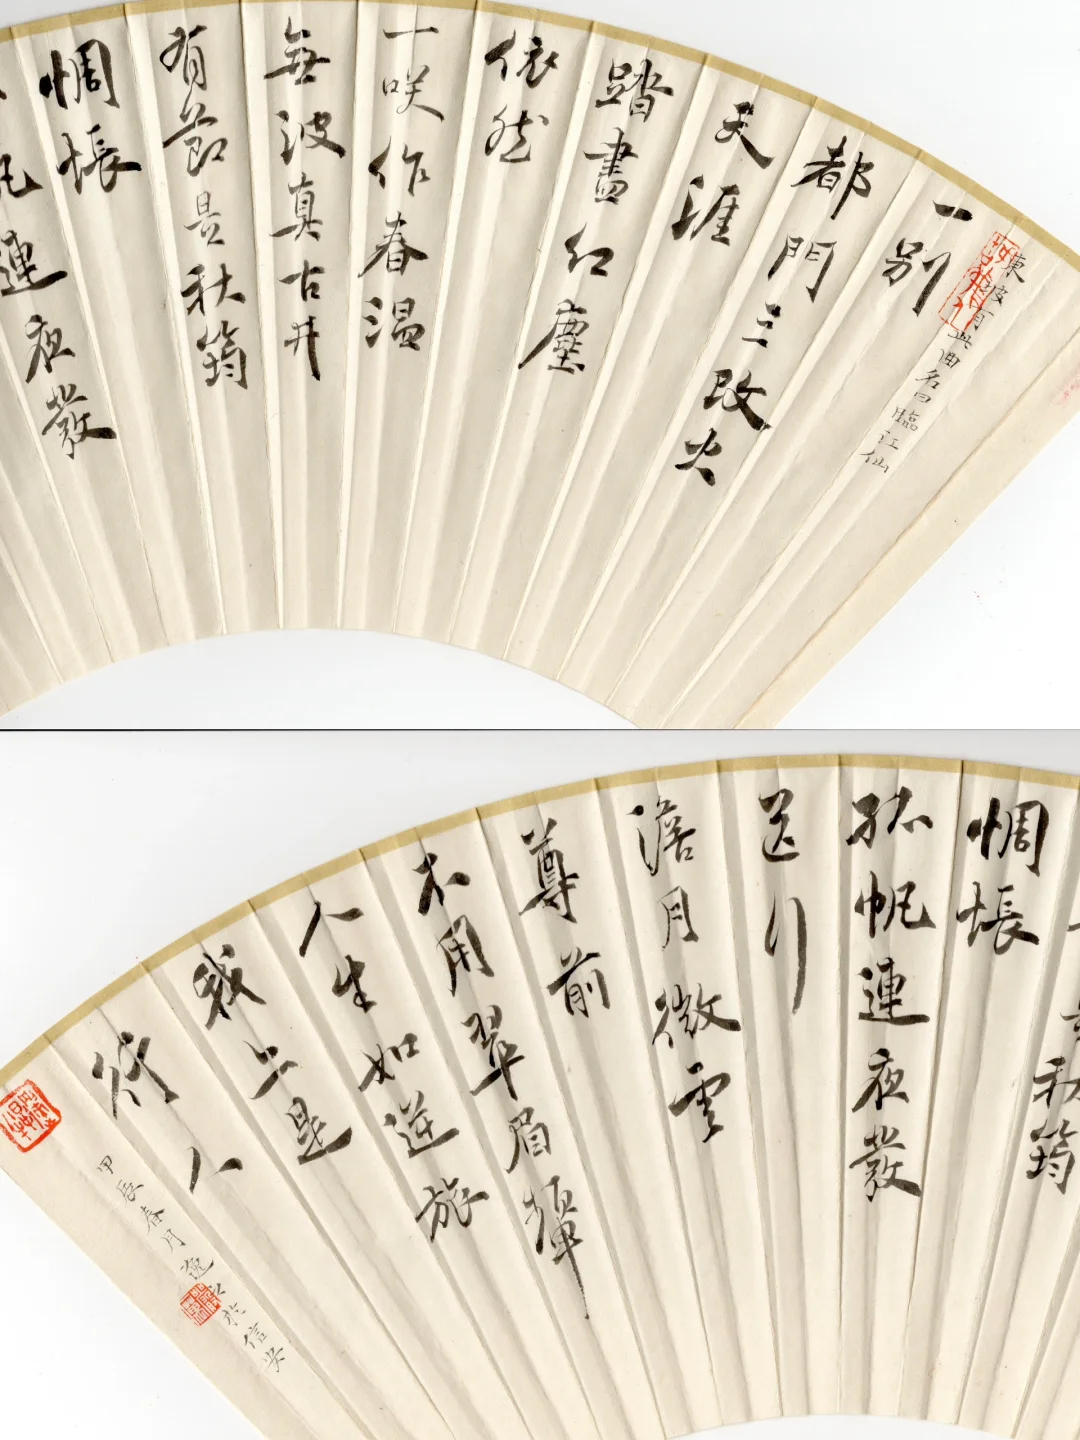 東坡有此曲名曰臨江仙
一別
都門三改火
天涯
踏盡紅塵
依然
一咲作春温
無波真古井
有節是秋筠
惆悵
帆連夜發
秋筠
惆悵
孤帆連夜發
送行
澹月微雲
尊前
不用翠眉顰
人生如逆旅
我亦是
行人
甲辰春月逸之於信安